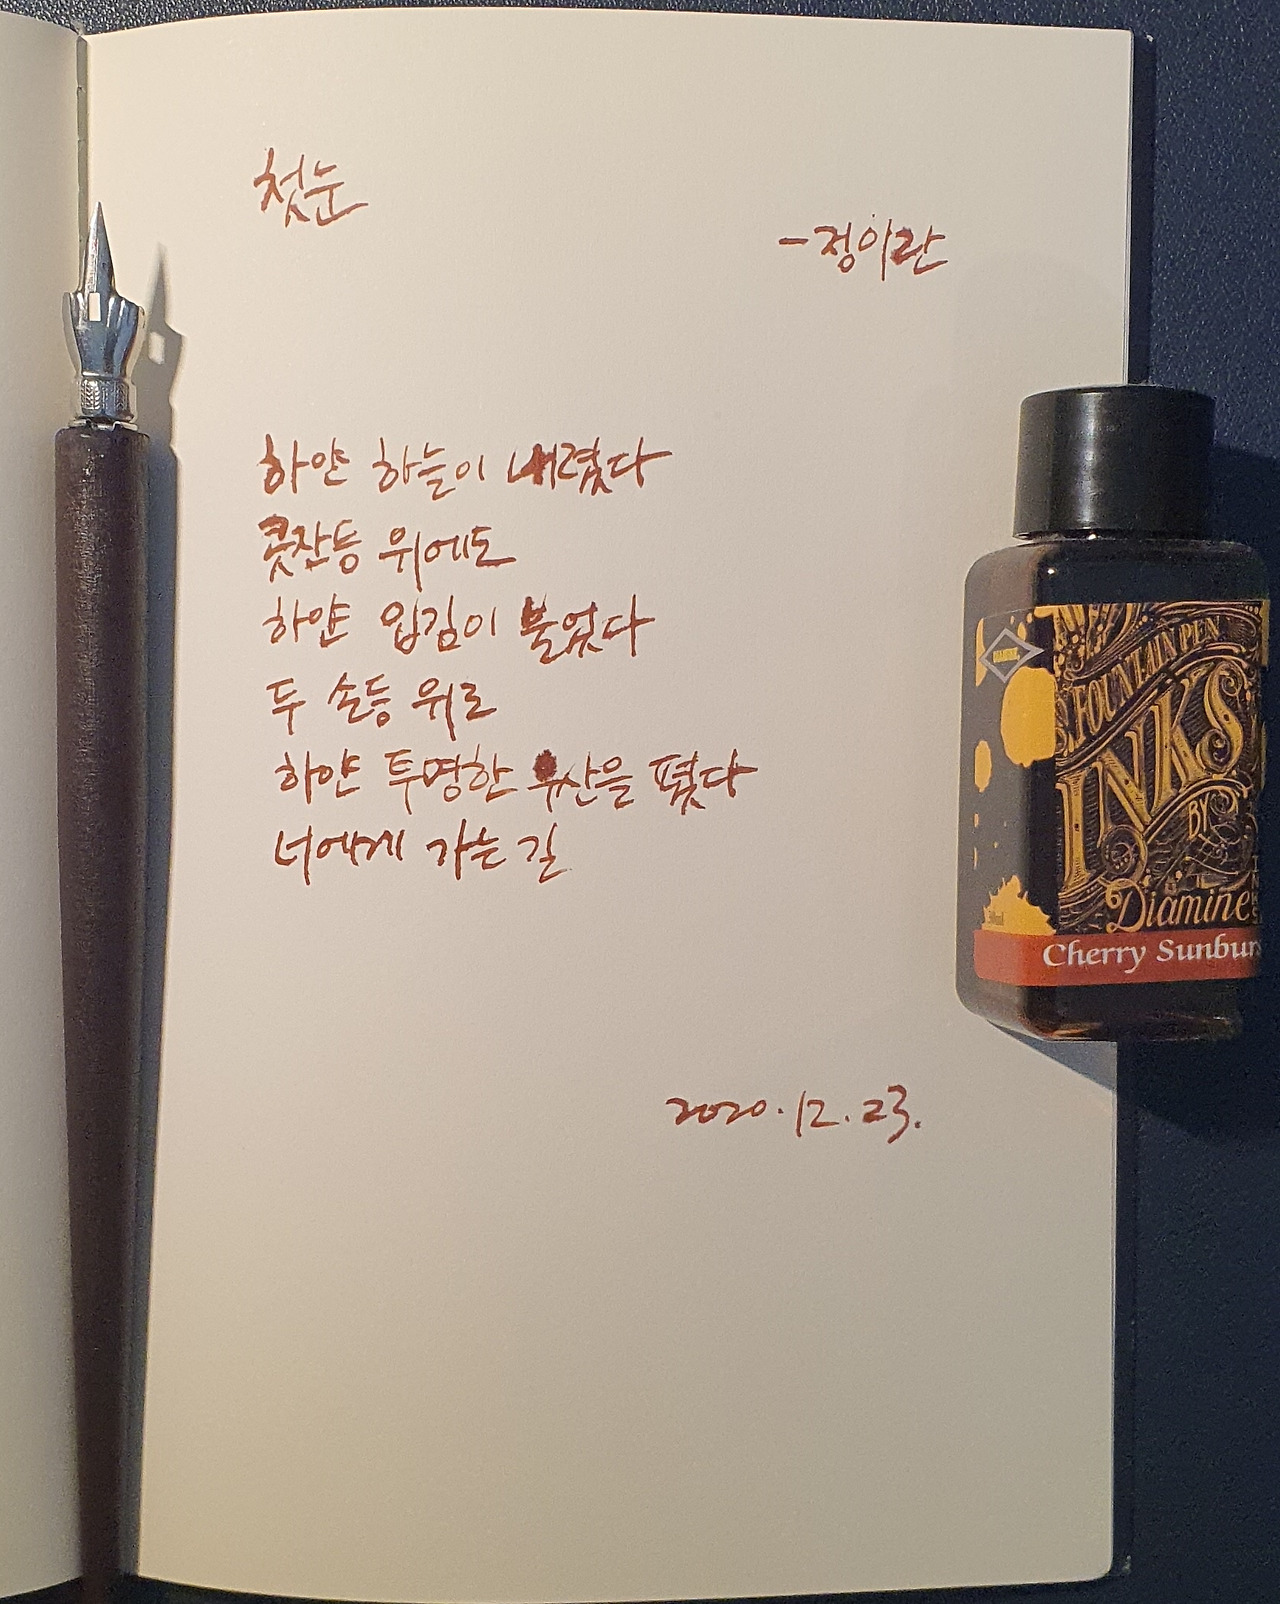 첫눈
- 정이란
하얀 하늘이 내렸다
콧잔등 위에도
하얀 입김이 불었다
두 손등 위로
하얀 투명한 우산을 폈다
너에게 가는 길
2020.12.23.
FOUNTAIN PEN
INKS
BY
Diamine
Cherry Sunburs